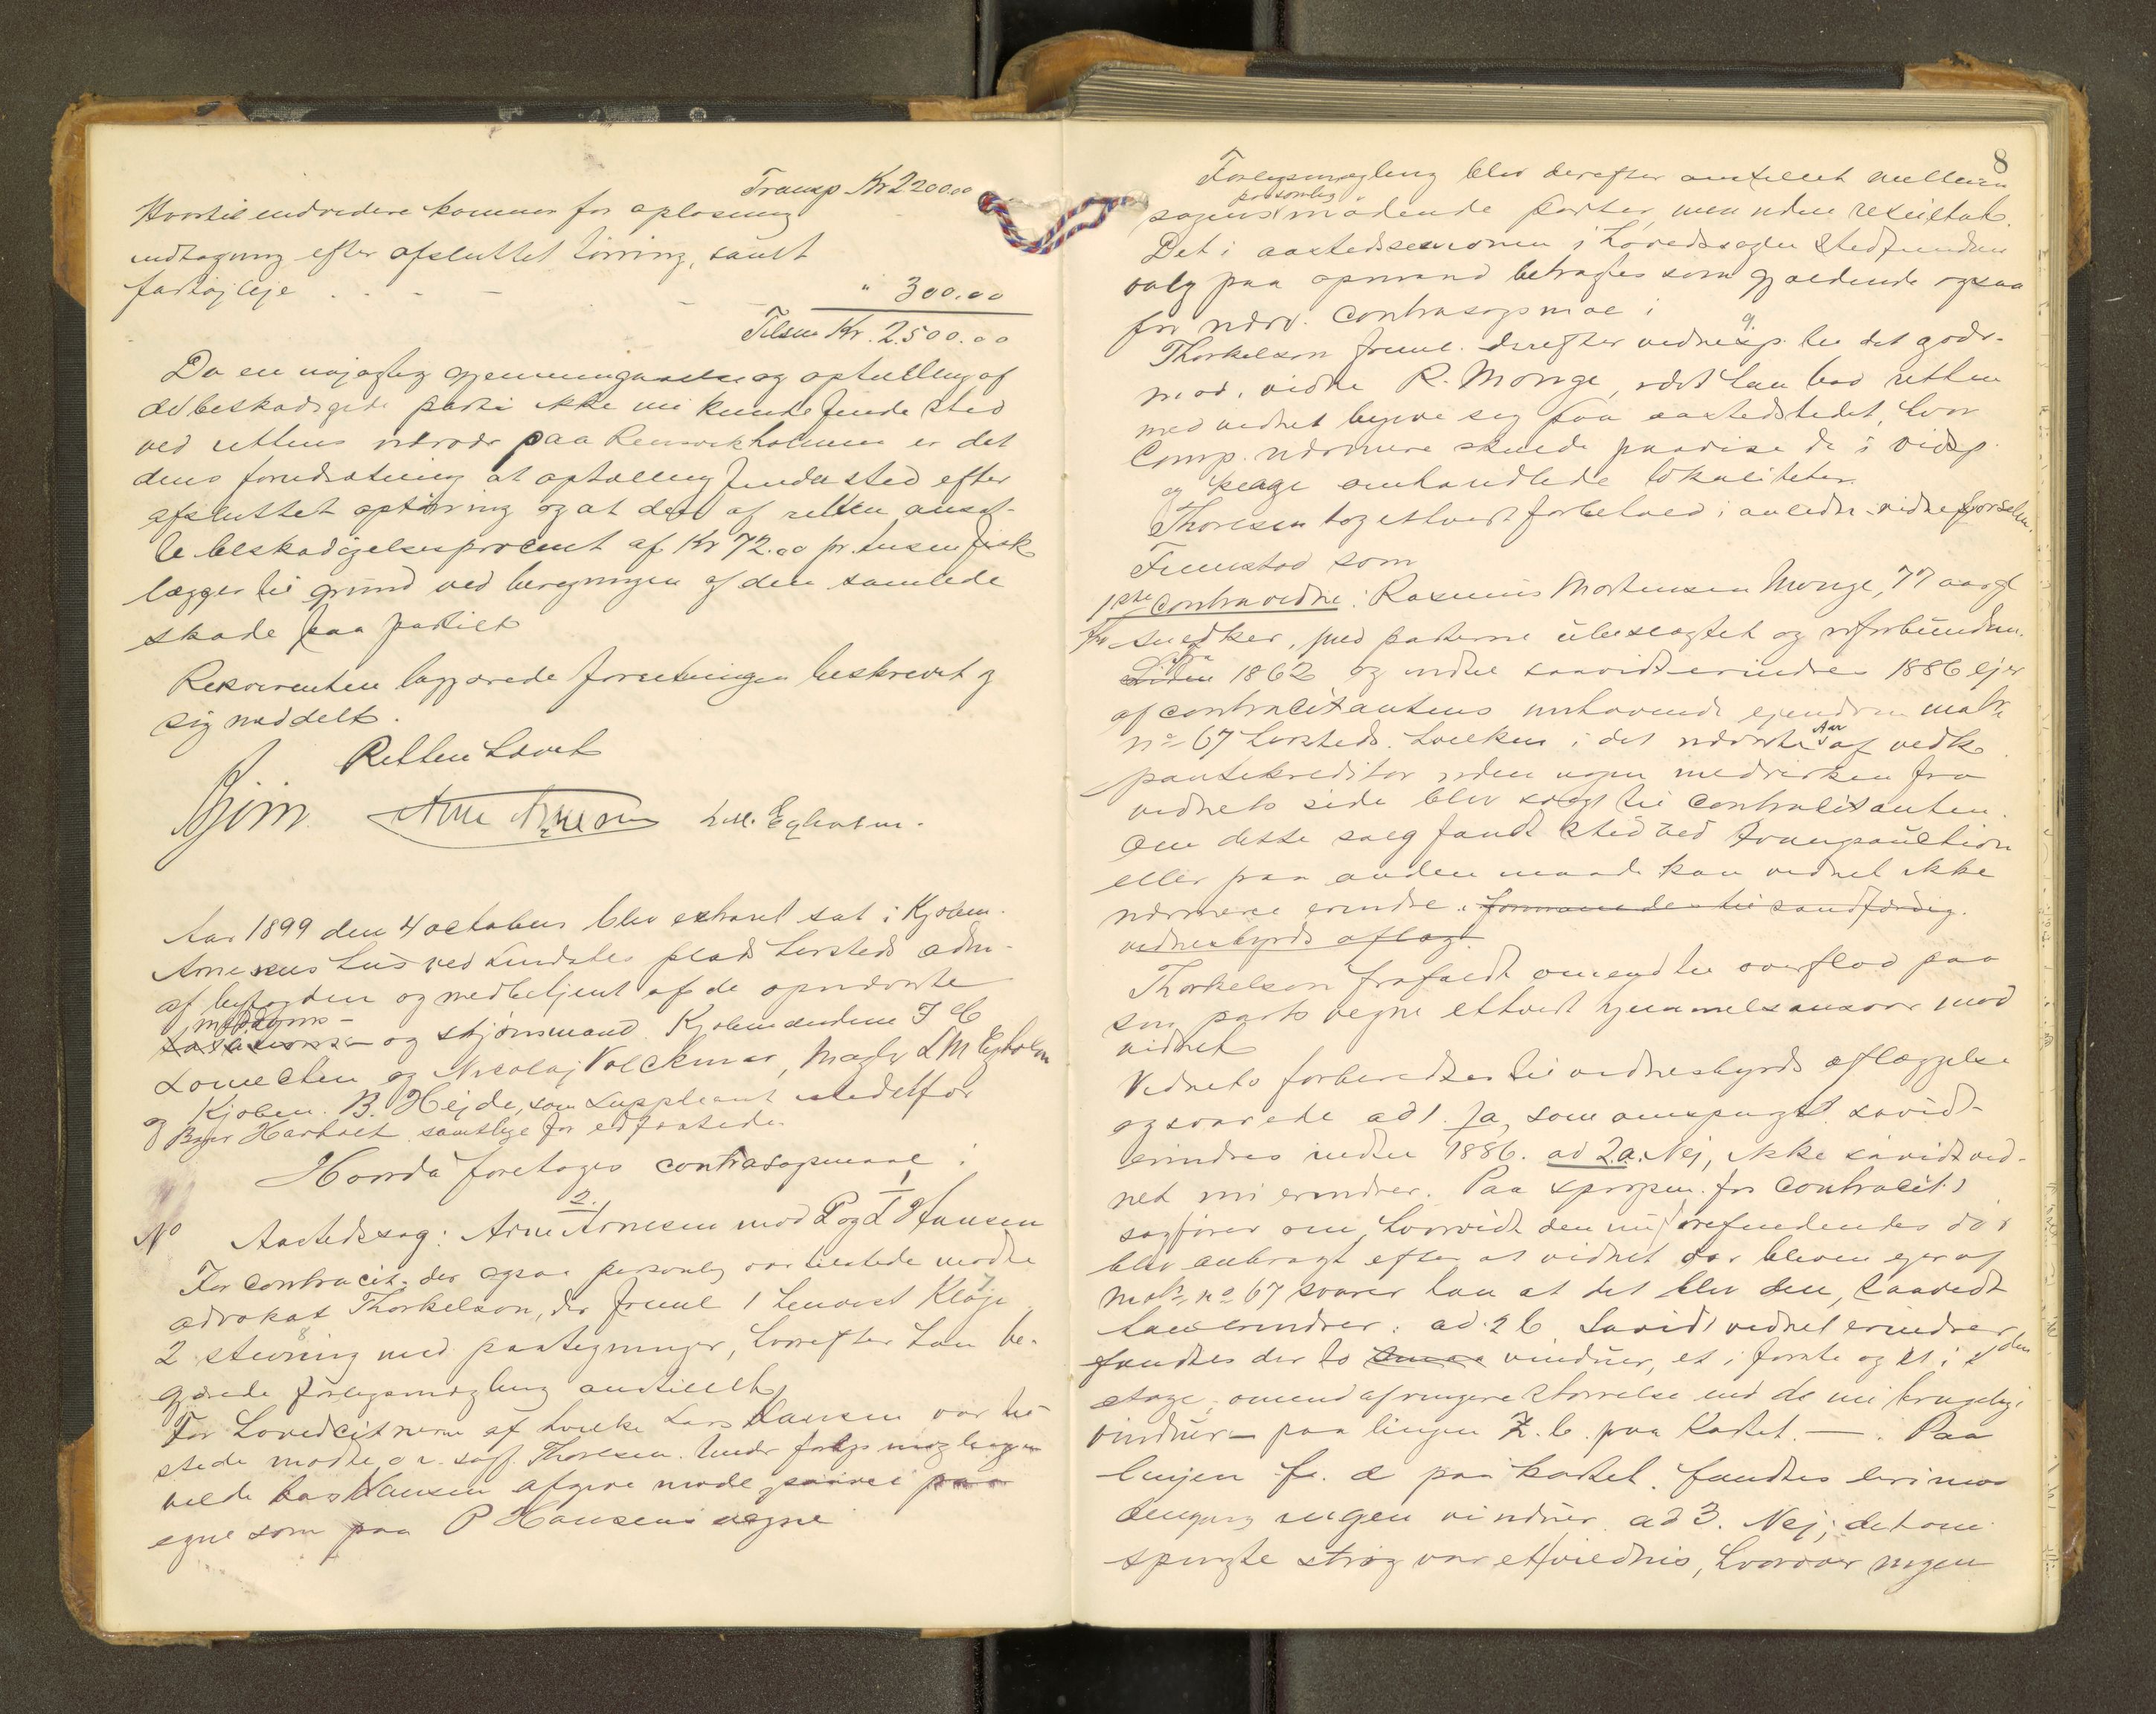 Transp Kr 2200.00
Hvortil endvidere kommer for oplosning
indtagning efter afsluttet törring, samt
fartøjleje . . - - - - " 300.00
Tilsm Kr. 2.500.00
Da en nøjagtig gjennemgaaelse og optælling af
det beskadigede parti ikke nu kunde finde sted
ved rettens nærvær paa er det
dens forudsætning at optælling finder sted efter
afsluttet optörring og at det af retten ansat-
te beskadigelsesprocent af Kr 72.00 pr. tusen fisk
lægges til grund ved beregningen af den samlede
skade paa partiet
Rekvirenten begjærede forretningen beskrevet og
sig meddelt.
Retten hævet
Arne Arnesen L.M. Egholm.
Aar 1899 den 4 october blev extraret sat i Kjøbm.
Arnesens hus ved Lindales plads hersteds adm-
af byfogden og medbetjent af de opnævnte
meddoms-
og skjønsmænd. Kjøbmændene J C
Lomelten og Nicolaj Volckmar, Mægler L M Egholm
og Kjøbm. B. Hejde, som suppleant istedetfor
Bager Hartvelt samtlige før edfæstede.
Hvorda foretoges contrasøgsmaal i
No 2./1 Aastedssag: Arne Arnesen mod P og L Hansen
For contracit. der ogsaa personlig var tilstede mødte
advokat Thorkelson, der freml 1 henvist Klage 7
2 stevning med paategninger, hvorefter han be- 8
gjærede forligsmægling anstillet.
For hovedcitnerne af hvilke Lars Hansen var til-
stede mødte o.r. sagf. Thoresen. Under forligsmæglingen
vilde Lars Hansen afgive møde saavel paa
egne som paa P Hansens vegne
8
Forligsmægling blev derefter anstillet mellem
personlig
sagens mødende parter, men uden resultat.
Det i aastedssessionen i hovedsagen stedfundne
valg paa opmand betragtes som gjældende ogsaa
for nærv. contrasøgsmaal i
Thorkelson freml. derefter vidnesp. til det godv. 9.
mød. vidne R. Monge, idet han bad retten
med vidnet begive sig paa aastedstedet, hvor
Comp. nærmere skulde paavise de i vidsp.
og klage omhandlede lokaliteter.
Thoresen tog ethvert forbehold i anledn. vidneførselen.
Fremstod som
1ste contravidne: Rasmus Mortensen Monge, 77 aar gl
fv snedker, med parterne ubeslægtet og uforbunden.
fra
Siden 1862 og indtil saavidt erindres 1886 ejer
af contracitantens nuhavende ejendom matr.
no 67 hersteds. hvilken i det nævnte Aar af vedk.
pantekreditor uden nogen medvirken fra
vidnets side blev solgt til contracitanten.
Om dette salg fandt sted ved tvangsauction
eller paa anden maade kan vidnet ikke
nærmere erindre. formanedes til sandfærdig.
vidnesbyrds aflæg.
Thorkelson frafaldt omend til overflod paa
sin parts vegne ethvert hjemmelsansvar mod
vidnet
Vidnets forberedtes til vidnesbyrds aflæggelse
og svarede ad 1. Ja, som omspurgt savidt-
erindres indtil 1886. ad 2.a. Nej, ikke saavidt vid-
net nu erindrer. Paa spørgsm. fra contracit.s
sagfører om, hvorvidt den nu forefindendes dør
blev anbragt efter at vidnet var bleven ejer af
matr. no 67 svarer han at det blev den, saavidt
han erindrer. ad 2 b. Savidt vidnet erindrer
fandtes der to vinduer, et i første og et i 2den
etage, omend af ringere størrelse end de nu brugelige
vinduer – paa linjen Z. b. paa Kartet. —. Paa
linjen f. d paa kartet. fandtes derimod
dengang ingen vinduer. ad 3. Nej; det om-
spurgte strøg var et vildnis, hvorover ingen